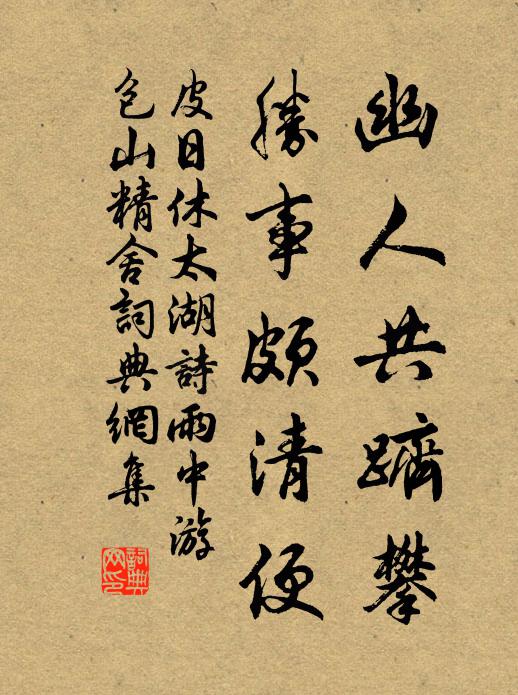 幽人共躋攀
勝事頗清便
皮日休太湖詩雨中游
包山精舍詞典網集
詞典
网印